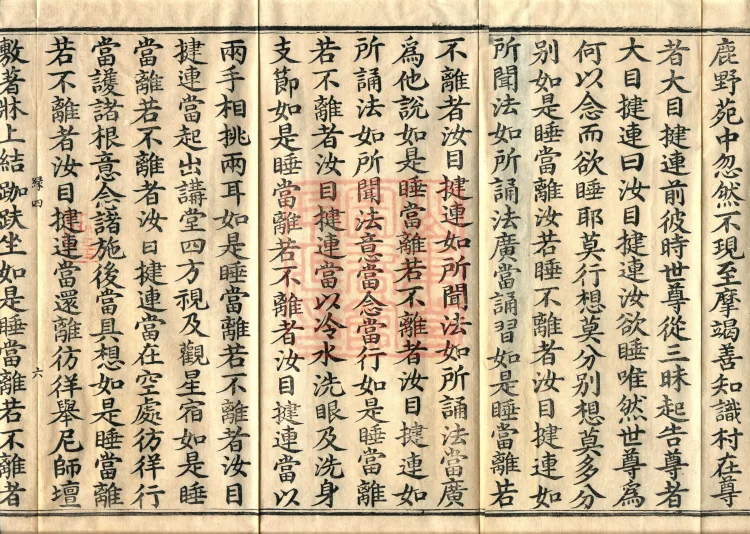 鹿野苑中忽然不現至摩竭善知識村在尊
者大目揵連前彼時世尊從三昧起告尊者
大目揵連曰汝目揵連汝欲睡唯然世尊為
何以念而欲睡耶莫行想莫分別想莫多分
別如是睡當離汝若睡不離者汝目揵連如
所聞法如所誦法廣當誦習如是睡當離若
不離者汝目揵連如所聞法如所誦法當廣
為他說如是睡當離若不離者汝目揵連如
所誦法如所聞法意當念當行如是睡當離
若不離者汝目揵連當以冷水洗眼及洗身
支節如是睡當離若不離者汝目揵連當以
兩手相挑兩耳如是睡當離若不離者汝目
揵連當起出講堂四方視及觀星宿如是睡
當離若不離者汝目揵連當在空處彷徉行
當護諸根意念諸施後當具想如是睡當離
若不離者汝目揵連當還離彷徉舉尼師壇
緣四
六
敷著牀上結跏趺坐如是睡當離若不離者